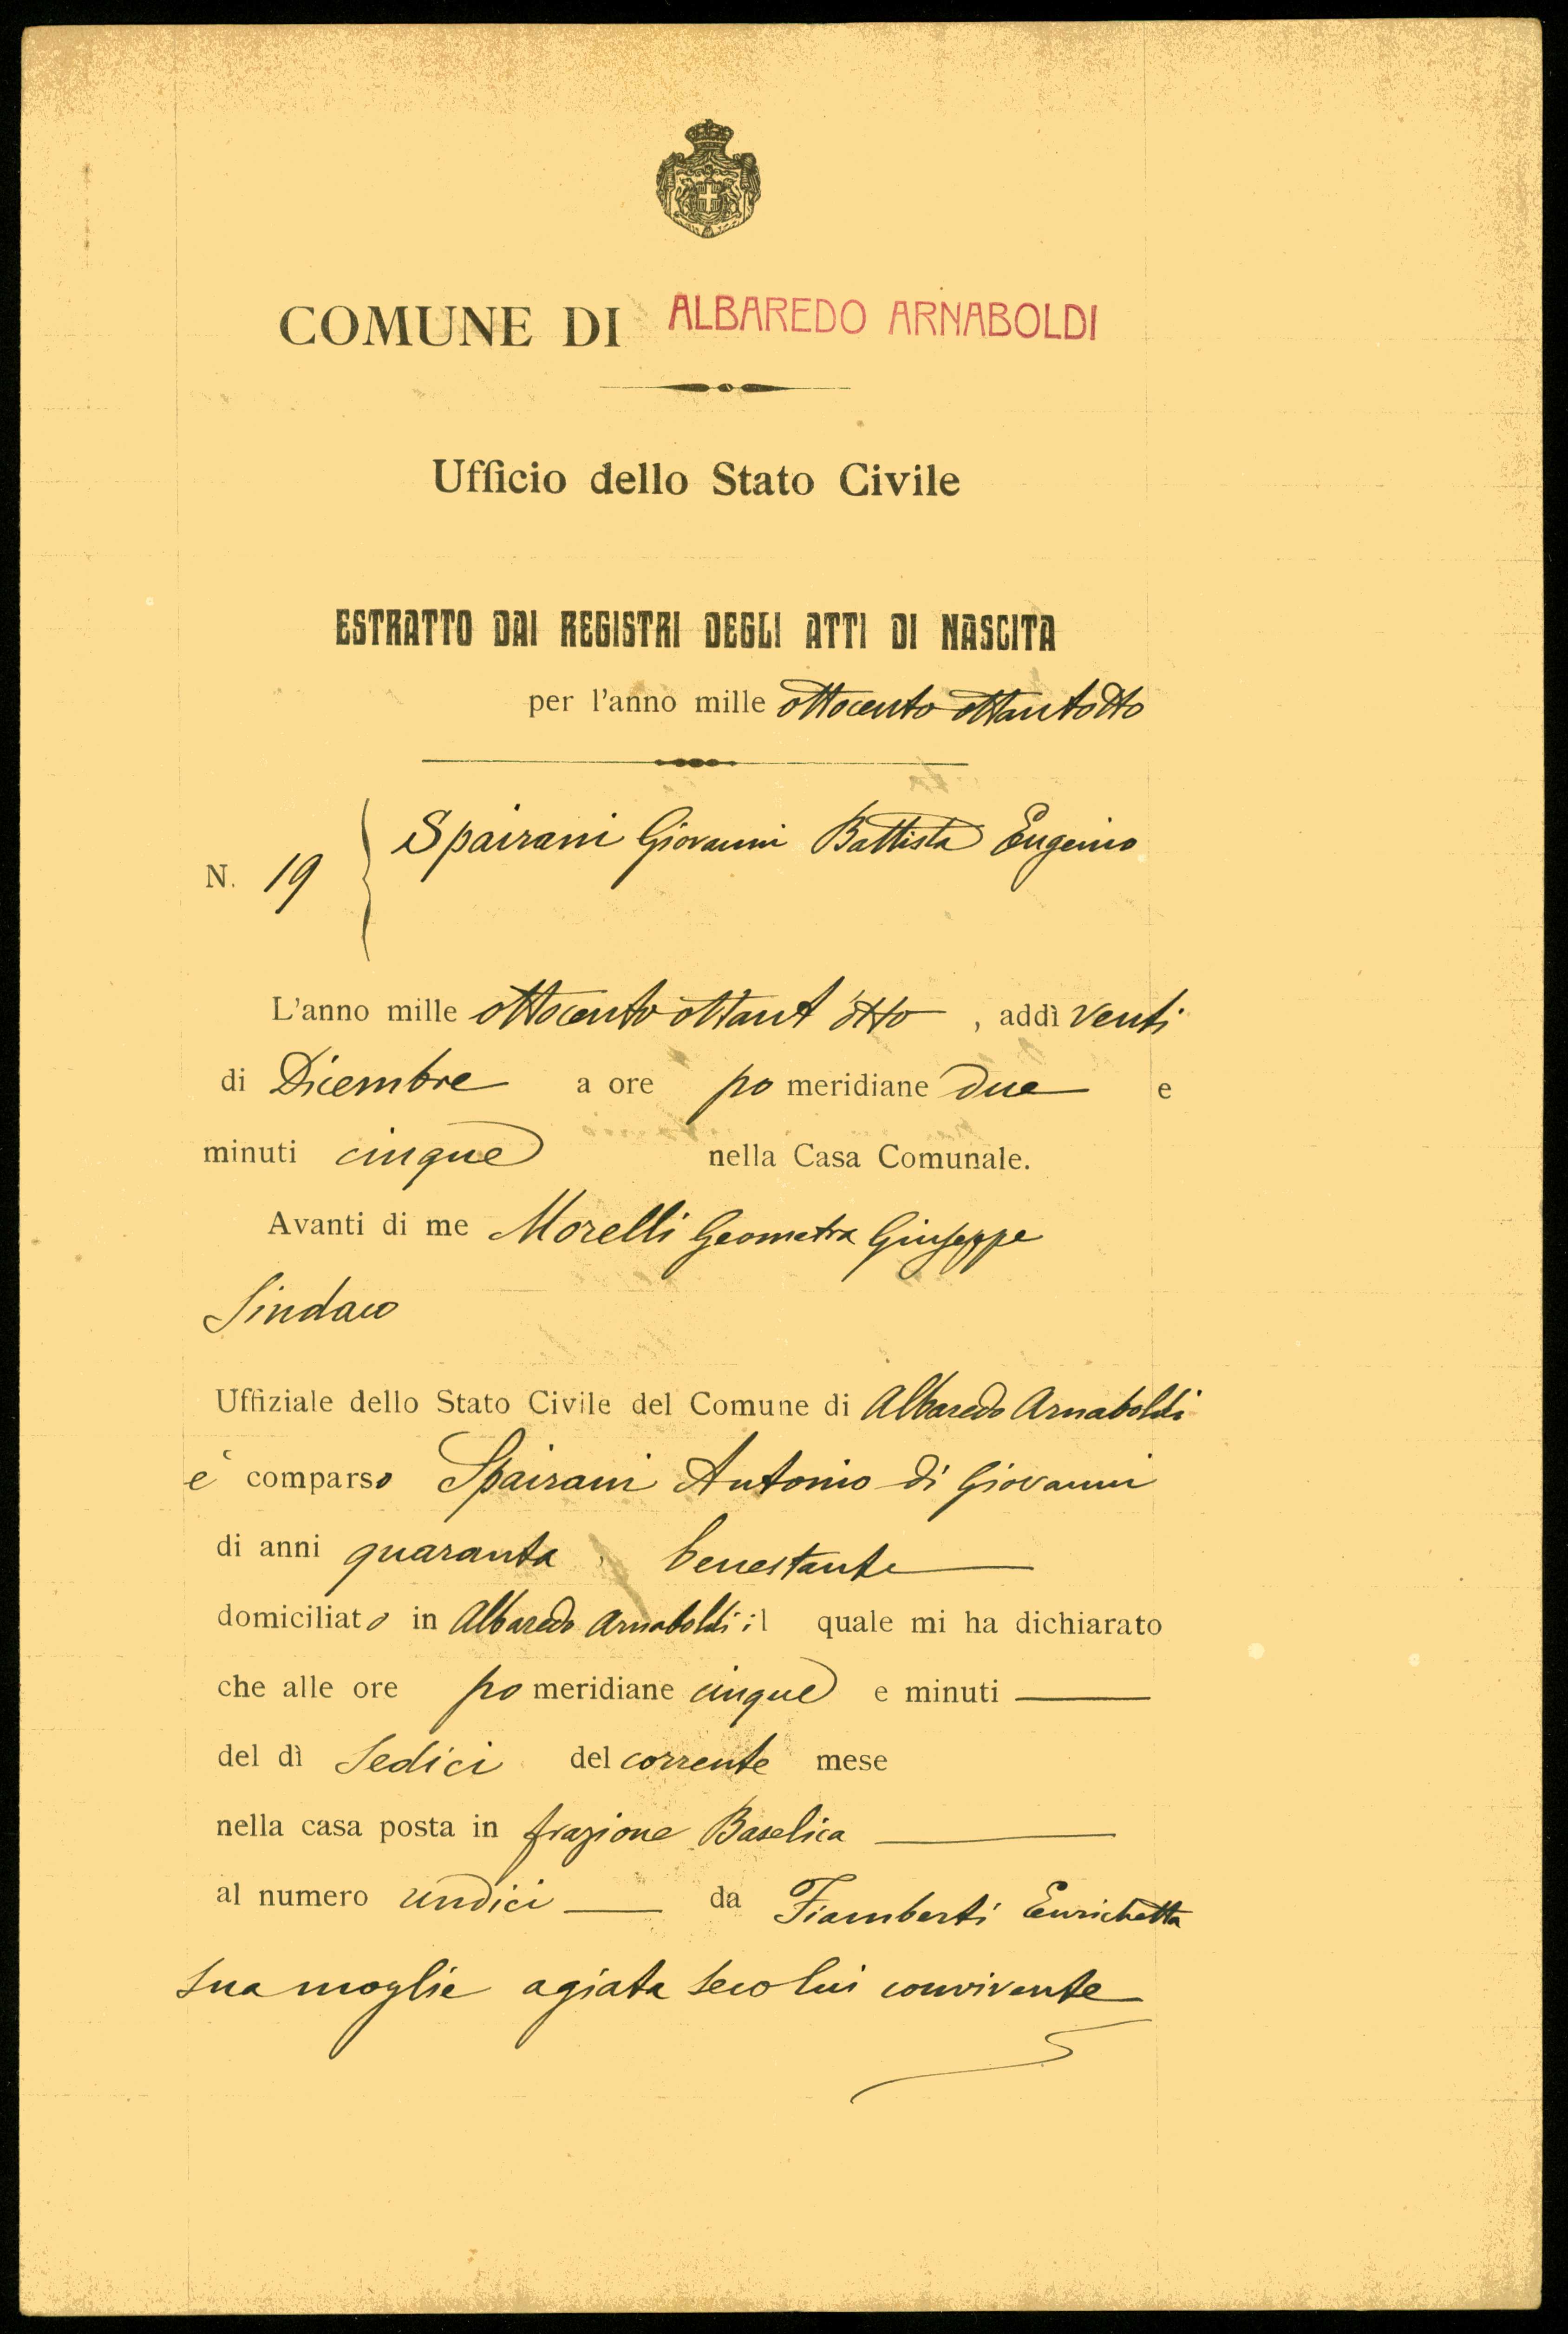 COMUNE DI ALBAREDO ARNABOLDI
Ufficio dello Stato Civile
ESTRATTO DAI REGISTRI DEGLI ATTI DI NASCITA
per l'anno mille ottocento ottantotto
Spairani Giovanni Battista Eugenio
N. 19
L'anno mille ottocento ottant'otto, addì venti
di Dicembre a ore pomeridiane due e
minuti cinque nella Casa Comunale.
Avanti di me Morelli Geometra Giuseppe
Sindaco
Uffiziale dello Stato Civile del Comune di Albaredo Arnaboldi
è comparso Spairani Antonio di Giovanni
di anni quaranta, benestante
domiciliato in Albaredo Arnaboldi il quale mi ha dichiarato
che alle ore pomeridiane cinque e minuti —
del dì sedici del corrente mese
nella casa posta in frazione Baselica
al numero undici da Fiamberti Enrichetta
sua moglie agiata seco lui convivente